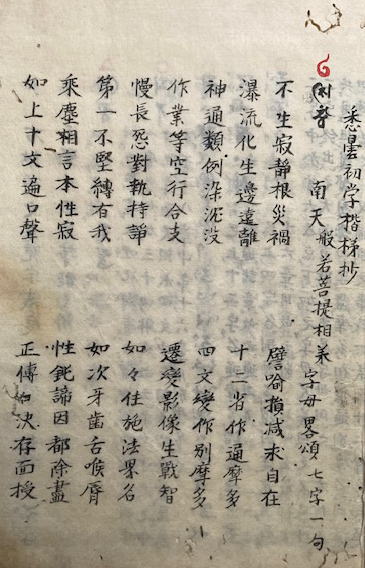 悉曇初学楷梯抄
南天般若菩提相羕 字母畧頌七字一句
不生寂静根災禍 譬喩損減求自在
瀑流化生邊遠離 十二省作通摩多
神通類例染沉没 四文變作別摩多
作業等空行合支 遷變影像生戰智
慢長怨對執持諍 如々住施法果名
第一不堅縛有我 如次牙齒舌喉脣
乘塵相言本性寂 性鈍諦因都除盡
如上十文遍口聲 正傳如決存面授